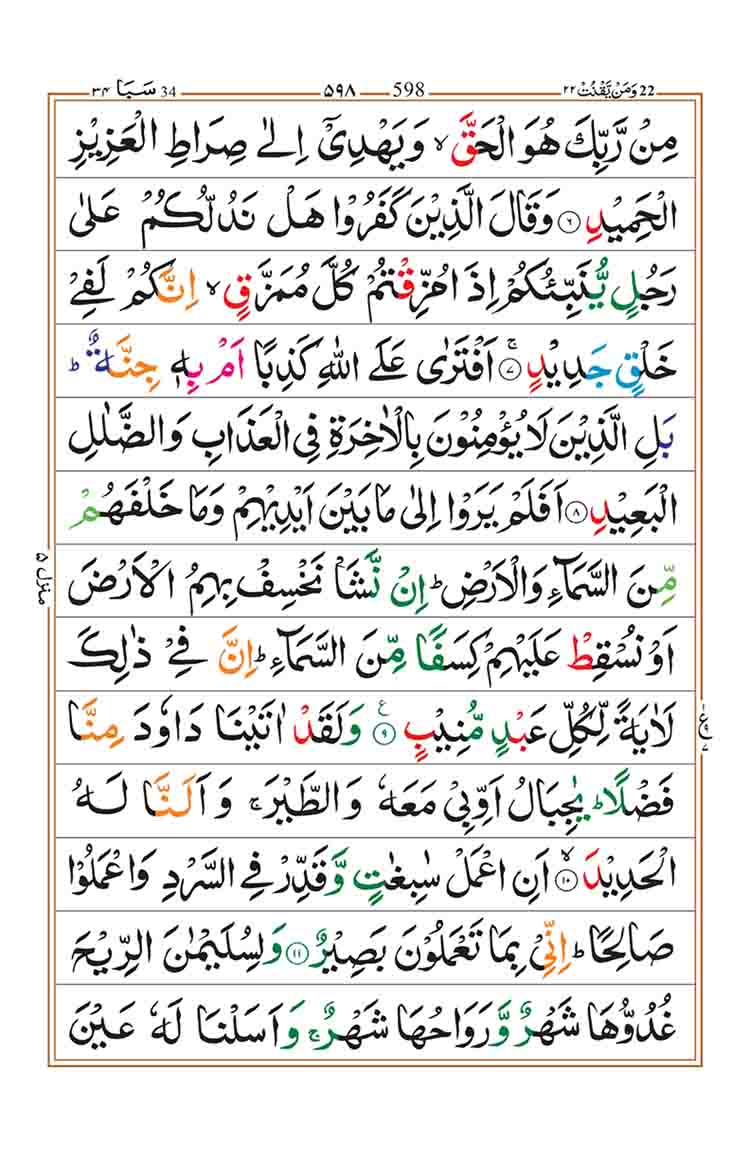 34 سَبَا ۳۴ 598 ۵۹۸ 22 وَمَنْ يَّقْنُتْ ۲۲
مِنْ رَّبِّكَ هُوَ الْحَقَّ ۙ وَيَهْدِيْۤ اِلٰى صِرَاطِ الْعَزِيْزِ
الْحَمِيْدِ ۶ وَقَالَ الَّذِيْنَ كَفَرُوْا هَلْ نَدُلُّكُمْ عَلٰى
رَجُلٍ يُّنَبِّئُكُمْ اِذَا مُزِّقْتُمْ كُلَّ مُمَزَّقٍ ۙ اِنَّكُمْ لَفِيْ
خَلْقٍ جَدِيْدٍ ۷ۚ اَفْتَرٰى عَلَى اللّٰهِ كَذِبًا اَمْ بِهٖ جِنَّةٌ ؕ
بَلِ الَّذِيْنَ لَا يُؤْمِنُوْنَ بِالْاٰخِرَةِ فِى الْعَذَابِ وَالضَّلٰلِ
الْبَعِيْدِ ۸ اَفَلَمْ يَرَوْا اِلٰى مَا بَيْنَ اَيْدِيْهِمْ وَمَا خَلْفَهُمْ
مِّنَ السَّمَآءِ وَالْاَرْضِ ؕ اِنْ نَّشَاْ نَخْسِفْ بِهِمُ الْاَرْضَ
اَوْ نُسْقِطْ عَلَيْهِمْ كِسَفًا مِّنَ السَّمَآءِ ؕ اِنَّ فِيْ ذٰلِكَ
لَاٰيَةً لِّكُلِّ عَبْدٍ مُّنِيْبٍ ۹ۧ وَلَقَدْ اٰتَيْنَا دَاوٗدَ مِنَّا
فَضْلًا ؕ يٰجِبَالُ اَوِّبِيْ مَعَهٗ وَالطَّيْرَ ۚ وَ اَلَنَّا لَهُ
الْحَدِيْدَ ۱۰ۙ اَنِ اعْمَلْ سٰبِغٰتٍ وَّقَدِّرْ فِى السَّرْدِ وَاعْمَلُوْا
صَالِحًا ؕ اِنِّيْ بِمَا تَعْمَلُوْنَ بَصِيْرٌ ۱۱ وَلِسُلَيْمٰنَ الرِّيْحَ
غُدُوُّهَا شَهْرٌ وَّرَوَاحُهَا شَهْرٌ ۚ وَ اَسَلْنَا لَهٗ عَيْنَ
منزل ۵